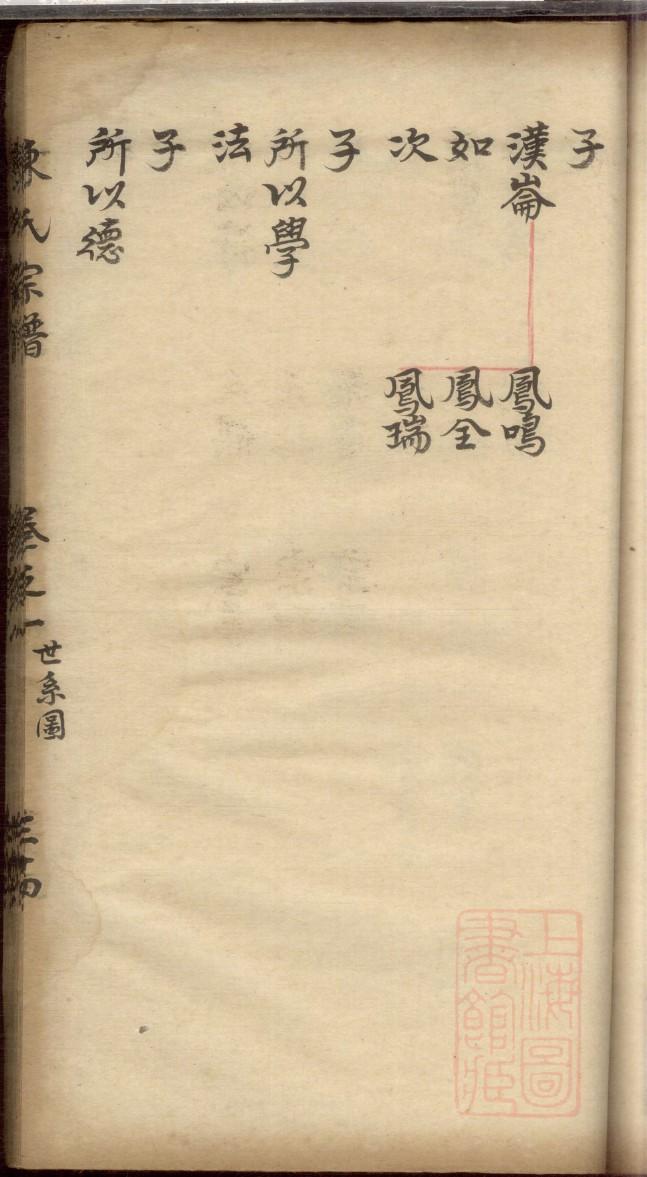 子
漢崙
如
次
鳳鳴
鳳全
鳳瑞
子
所以學
法
子
所以德
陳氏宗譜
卷一
世系圖
上海圖
書館藏